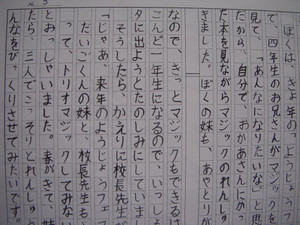 ぼくは、きょ年の
て、四年生のお兄さんがマジックを
見て、「あんなになりたいな」と思
たから、自分で、おかあさんにかっ
た本を見ながらマジックのれんしゅ
きました。ぼくの妹も、あやとりが
なので、きっとマジックもできるは
こんど一年生になるので、いっしょ
タに出ようとたのしみにしています
そうしたら、かえりに校長先生が
「じゃあ、来年のようじょうフェ
だいごくんの妹と、校長先生も
って、トリオマジックしてみない
とおっしゃいました。春がきて、妹
たら、三人でこっそりとれんしゅう
んなをびっくりさせてみたいです。